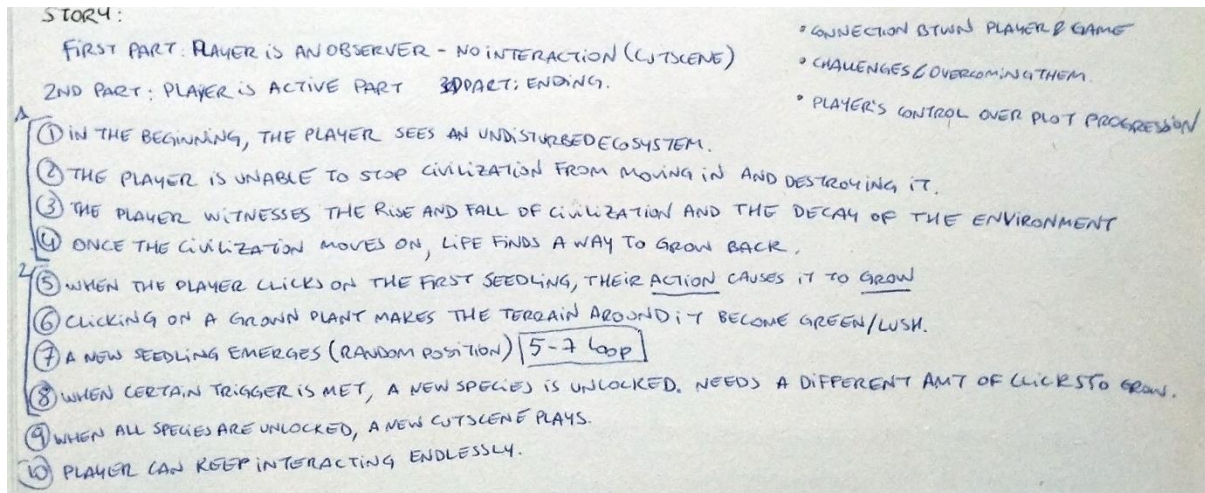 STORY:
FIRST PART: PLAYER IS AN OBSERVER - NO INTERACTION (CUTSCENE)
2ND PART: PLAYER IS ACTIVE PART 3D PART: ENDING.
• CONNECTION BTWN PLAYER & GAME
• CHALLENGES & OVERCOMING THEM.
• PLAYER'S CONTROL OVER PLOT PROGRESSION
1
① IN THE BEGINNING, THE PLAYER SEES AN UNDISTURBED ECOSYSTEM.
② THE PLAYER IS UNABLE TO STOP CIVILIZATION FROM MOVING IN AND DESTROYING IT.
③ THE PLAYER WITNESSES THE RISE AND FALL OF CIVILIZATION AND THE DECAY OF THE ENVIRONMENT
④ ONCE THE CIVILIZATION MOVES ON, LIFE FINDS A WAY TO GROW BACK.
2
⑤ WHEN THE PLAYER CLICKS ON THE FIRST SEEDLING, THEIR ACTION CAUSES IT TO GROW
⑥ CLICKING ON A GROWN PLANT MAKES THE TERRAIN AROUND IT BECOME GREEN/LUSH.
⑦ A NEW SEEDLING EMERGES (RANDOM POSITION) 5-7 LOOP
⑧ WHEN CERTAIN TRIGGER IS MET, A NEW SPECIES IS UNLOCKED. NEEDS A DIFFERENT AMT OF CLICKS TO GROW.
⑨ WHEN ALL SPECIES ARE UNLOCKED, A NEW CUTSCENE PLAYS.
⑩ PLAYER CAN KEEP INTERACTING ENDLESSLY.